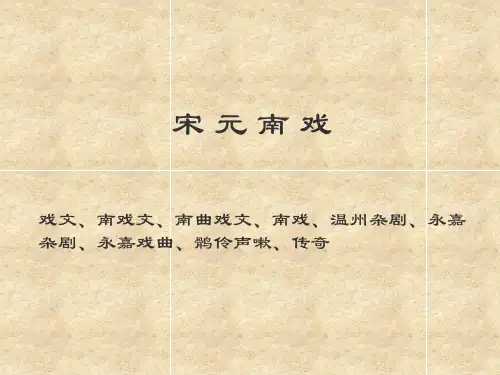 宋元南戏
戏文、南戏文、南曲戏文、南戏、温州杂剧、永嘉
杂剧、永嘉戏曲、鹘伶声嗽、传奇